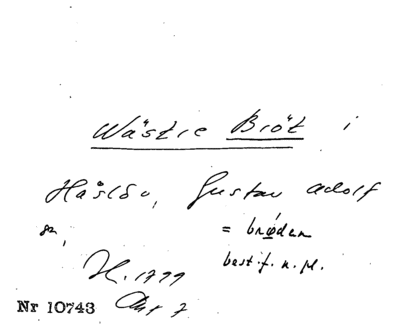 Wästre Bröt i
Håslöv, Gustav Adolf
sn, = brǿden
best. f. n. pl.
H. 1799
Nr 10743 Akt 7